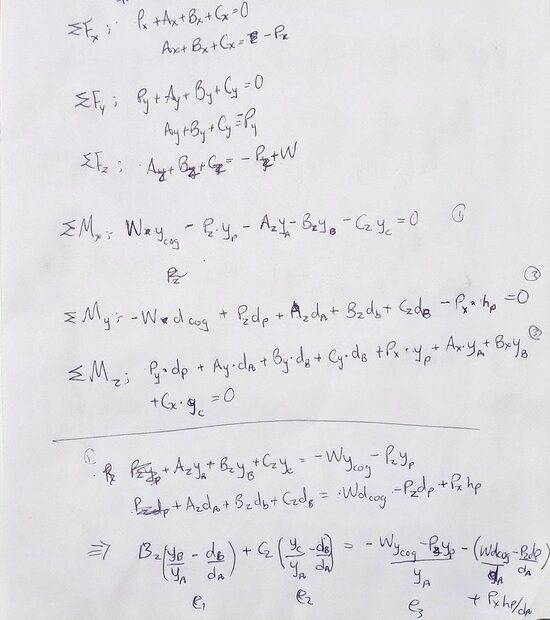 ΣFx; Px + Ax + Bx + Cx = 0
Ax + Bx + Cx = - Px
ΣFy; Py + Ay + By + Cy = 0
Ay + By + Cy = Py
ΣFz; Az + Bz + Cz = - Pz + W
ΣMx; W • ycog - Pz • yp - Az yA - Bz yB - Cz yc = 0 ①
Pz
ΣMy; - W • dcog + Pz dp + Az dA + Bz db + Cz dB - Px • hp = 0 ②
ΣMz; Py • dp + Ay • dA + By • dB + Cy • dB + Px • yp + Ax • yA + Bx yB
+ Cx • yc = 0
① Az yA + Bz yB + Cz yc = - Wycog - Pz yp
Az dA + Bz db + Cz dB = Wdcog - Pz dp + Px hp
⇒ Bz (yB/yA - dB/dA) + Cz (yc/yA - dB/dA) = (- Wycog - Pz yp)/yA - (Wdcog - Pz dp)/dA
e1 e2 e3 + Px hp/dA